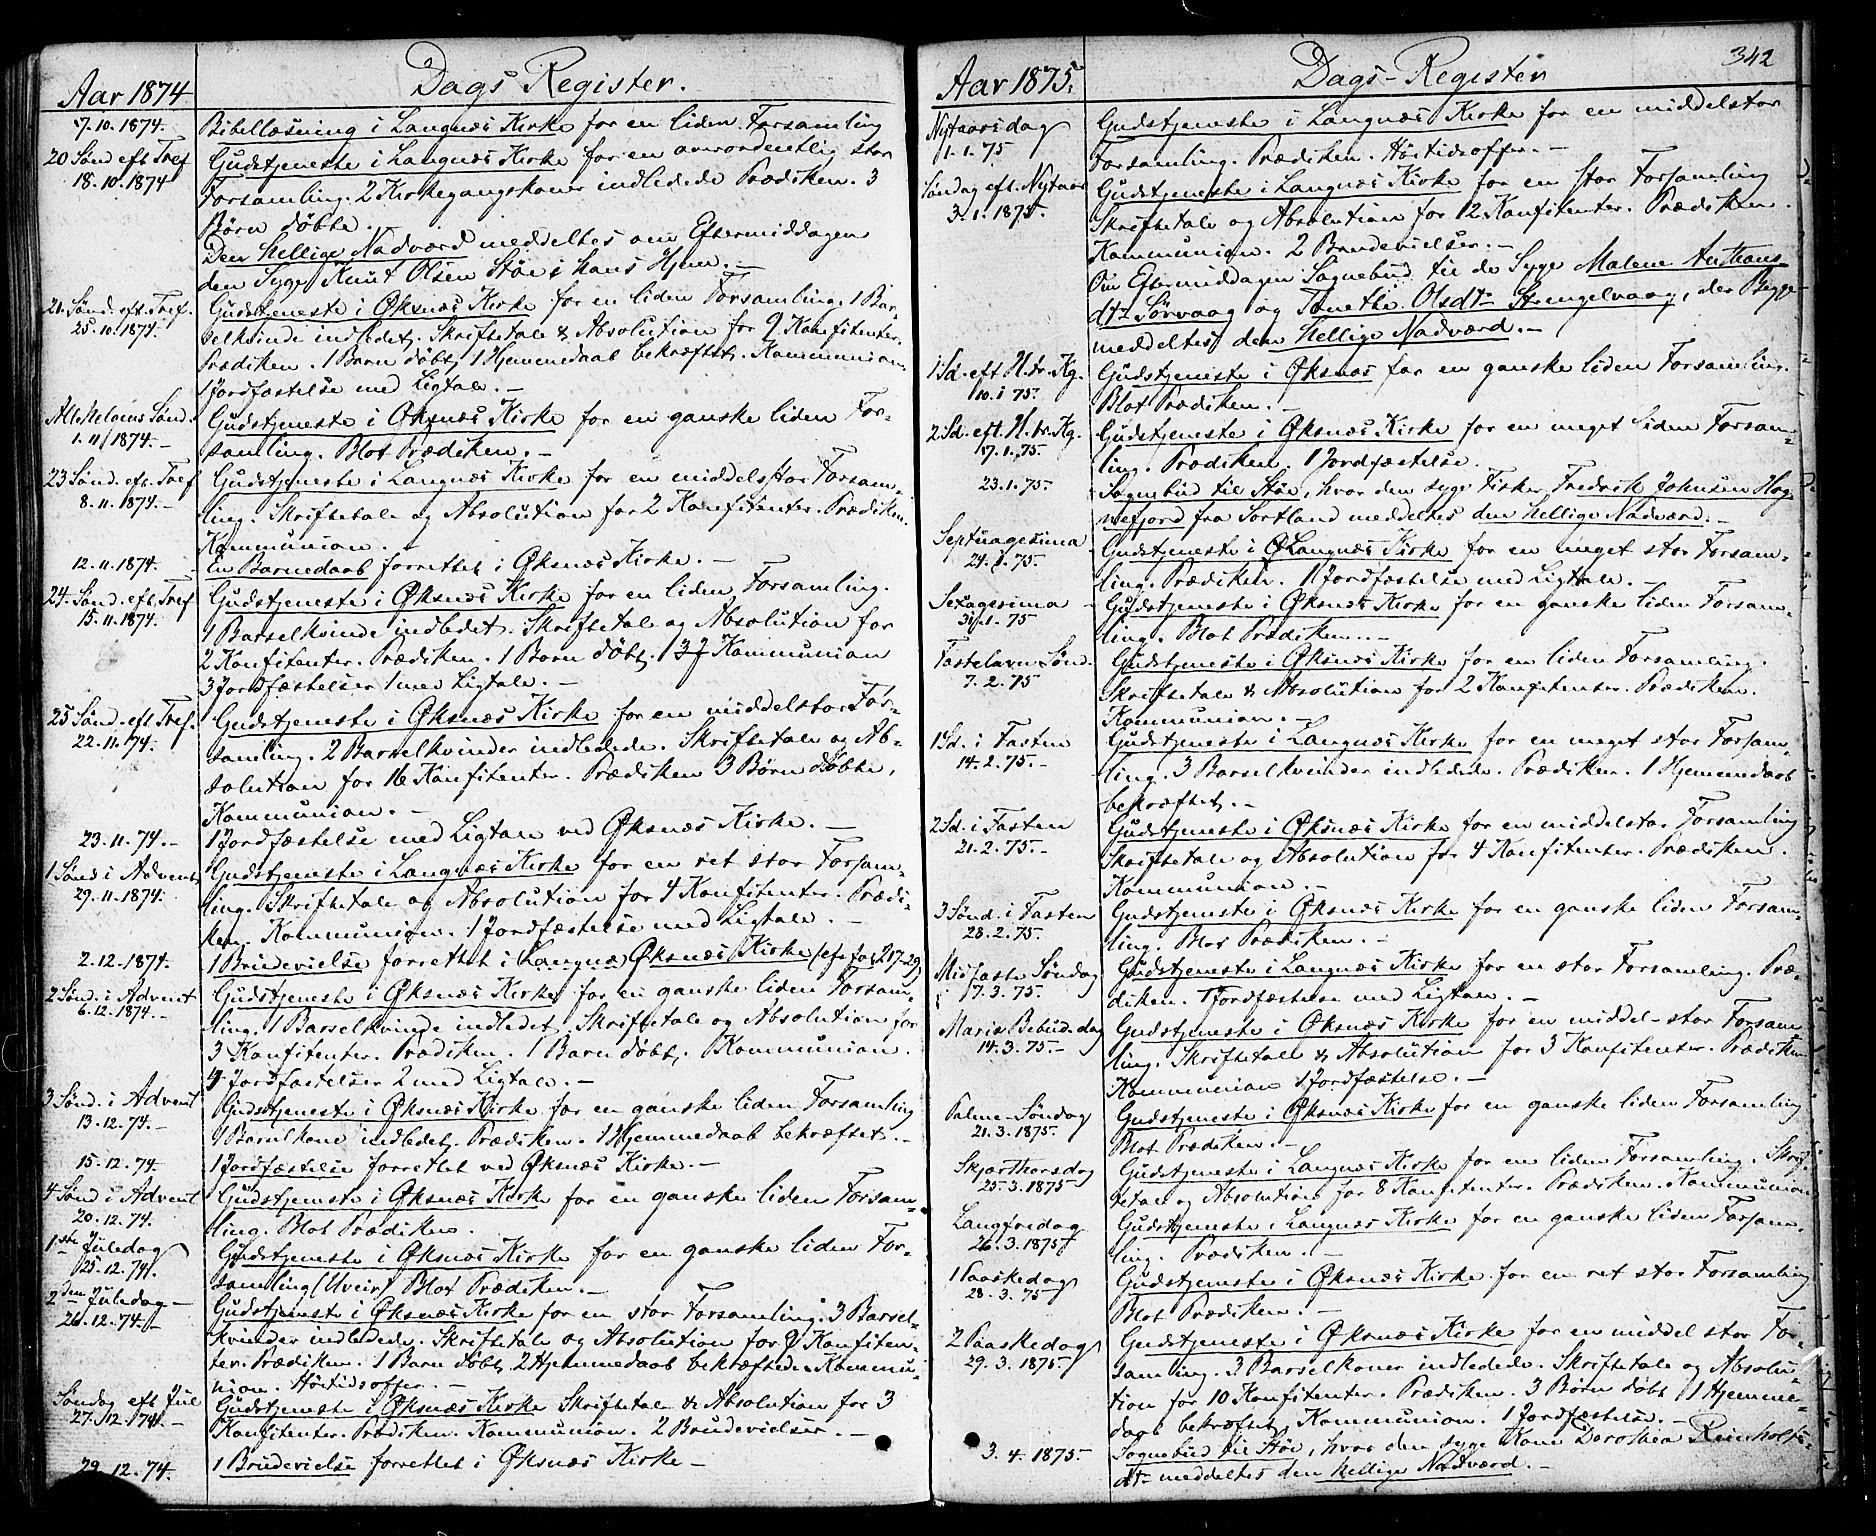 Aar 1874
Dags Register.
17.10.1874.
Bibellæsning i Langnæs Kirke for en liden Forsamling
20 Sønd eft Tref
Gudstjeneste i Langnæs Kirke for en overordentlig stor
18.10.1874
Forsamling. 2 Kirkegangskoner indledede Prædiken. 3
Børn døbte.
Den hellige Nadværd meddeltes om Eftermiddagen
den Syge Knut Olsen Støe i hans Hjem. –
21 Sønd. eft. Tref.
Gudstjeneste i Øksnæs Kirke for en liden Forsamling. 1 Bar-
25.10.1874.
selkvinde indledet. Skriftetale & Absolution for 9 Konfitenter.
Prædiken. 1 Barn døbt, 1 Hjemmedaab bekræftet. Kommunion.
1 Jordfæstelse med Ligtale. –
Alle Helgens Sønd.
Gudstjeneste i Øksnæs Kirke for en ganske liden For-
1.11.1874. –
samling. Blot Prædiken. –
23 Sønd. eft. Tref
Gudstjeneste i Langnæs Kirke for en middelstor Forsam-
8.11.1874. –
ling. Skriftetale og Absolution for 2 Konfitenter. Prædiken.
Kommunion. –
12.11.1874.
En Barnedaab forrettet i Øksnæs Kirke. –
24. Sønd. eft. Tref
Gudstjeneste i Øksnæs Kirke for en liden Forsamling.
15.11.1874.
1 Barselkvinde indledet. Skriftetale og Absolution for
2 Konfitenter. Prædiken. 1 Barn døbt. Kommunion
3 Jordfæstelser 1 med Ligtale. –
25 Sønd. eft Tref.
Gudstjeneste i Øksnæs Kirke for en middelstor For-
22.11.74.
samling. 2 Barselkvinder indledede. Skriftetale og Ab-
solution for 16 Konfitenter. Prædiken 3 Børn døbte,
Kommunion. –
23.11.74. –
1 Jordfæstelse med Ligtale ved Øksnæs Kirke. –
1 Sønd i Advent
Gudstjeneste i Langnæs Kirke for en ret stor Forsam-
29.11.1874.
ling. Skriftetale og Absolution for 4 Konfitenter. Prædi-
ken. Kommunion. 1 Jordfæstelse med Ligtale. –
2.12.1874.
1 Brudevielse forrettet i (Langnæ) Øksnæs Kirke
2 Sønd. i Advent
Gudstjeneste i Øksnæs Kirke for en ganske liden Forsam-
6.12.1874. –
ling. 1 Barselkvinde indledet. Skriftetale og Absolution for
3 Konfitenter. Prædiken. 1 Barn døbt. Kommunion.
4 Jordfæstelser 2 med Ligtale. –
3 Sønd. i Advent
Gudstjeneste i Øksnæs Kirke for en ganske liden Forsamling
13.12.74. –
1 Barselkone indledet. Prædiken. 1 Hjemmedaab bekræftet. –
15.12.74.
1 Jordfæstelse forrettet ved Øksnæs Kirke. –
4 Sønd i Advent
Gudstjeneste i Øksnæs Kirke for en ganske liden Forsam-
20.12.74.
ling. Blot Prædiken.
1ste Juledag
Gudstjeneste i Øksnæs Kirke for en ganske liden For-
25.12.74.
samling (Uveir) Blot Prædiken. –
2den Juledag –
Gudstjeneste i Øksnæs Kirke for en stor Forsamling. 3 Barsel-
26.12.74. –
kvinder indledede. Skriftetale og Absolution for 9 Konfiten-
ter. Prædiken. 1 Barn døbt, 2 Hjemmedaab bekræftede. Kommu-
nion. Høitidsoffer. –
Søndag eft Jul
Gudstjeneste i Øksnæs Kirke Skriftetale & Absolution for 3
27.12.74. –
Konfitenter. Prædiken. Kommunion. 2 Brudevielser. –
29.12.74.
1 Brudevielse forrettet i Øksnæs Kirke –
Aar 1875.
Dags-Register
342
Nytaarsdag
Gudstjeneste i Langnæs Kirke for en middelstor
1.1.75
Forsamling. Prædiken. Høitidsoffer. –
Søndag eft. Nytaar
Gudstjeneste i Langnæs Kirke for en stor Forsamling
3.1.1875.
Skriftetale og Absolution for 12 Konfitenter. Prædiken.
Kommunion. 2 Brudevielser. –
Om Eftermiddagen Sognebud til de Syge Malene Anthons-
dtr Sørvaag og Tonetha Olsdtr Strengelvaag, der Begge
meddeltes den hellige Nadværd. –
1 Sd. eft H. tr. Kg.
Gudstjeneste i Øksnæs for en ganske liden Forsamling.
10.1 75.
Blot Prædiken. –
2 Sd. eft. H. tr. Kg.
Gudstjeneste i Øksnæs Kirke for en meget liden Forsam-
17.1.75.
ling. Prædiken. 1 Jordfæstelse.
23.1.75.
Sognebud til Støe, hvor den syge Fisker Fredrik Johnsen Hog-
nefjord fra Sortland meddeltes den hellige Nadværd. –
Septuagesima
Gudstjeneste i Langnæs Kirke for en meget stor Forsam-
24.1.75.
ling. Prædiken. 1 Jordfæstelse med Ligtale. –
Sexagesima –
Gudstjeneste i Øksnæs Kirke for en ganske liden Forsam-
31.1.75
ling. Blot Prædiken. –
Fastelavns Sønd.
Gudstjeneste i Øksnæs Kirke for en liden Forsamling.
7.2.75
Skriftetale & Absolution for 2 Konfitenter. Prædiken.
Kommunion. –
1 Sd. i Fasten
Gudstjeneste i Langnæs Kirke for en meget stor Forsam-
14.2.75. –
ling. 3 Barselkvinder indledede. Prædiken. 1 Hjemmedaab
bekræftet. –
2 Sd. i Fasten
Gudstjeneste i Øksnæs Kirke for en middelstor Forsamling
21.2.75. –
Skriftetale og Absolution for 4 Konfitenter. Prædiken.
Kommunion. –
3 Sønd. i Fasten
Gudstjeneste i Øksnæs Kirke for en ganske liden Forsam-
28.2.75.
ling. Blot Prædiken. –
Midfaste Søndag
Gudstjeneste i Langnæs Kirke for en stor Forsamling. Præ-
7.3.75.
diken. 1 Jordfæstelse med Ligtale. –
Mariæ Bebud. dag
Gudstjeneste i Øksnæs Kirke for en middel-stor Forsam-
14.3.75. –
ling. Skriftetale & Absolution for 3 Konfitenter. Prædiken
Kommunion 1 Jordfæstelse. –
Palme-Søndag
Gudstjeneste i Øksnæs Kirke for en ganske liden Forsamling
21.3.1875.
Blot Prædiken. –
Skjærthorsdag
Gudstjeneste i Langnæs Kirke for en liden Forsamling. Skrif-
25.3.1875
tetale og Absolution for 8 Konfitenter. Prædiken. Kommunion
Langfredag
Gudstjeneste i Langnæs Kirke for en ganske liden Forsam-
26.3.1875
ling. Prædiken. –
1 Paaskedag
Gudstjeneste i Øksnæs Kirke for en ret stor Forsamling
28.3.75
Blot Prædiken. –
2 Paaskedag
Gudstjeneste i Øksnæs Kirke for en middel stor For-
29.3.1875.
samling. 3 Barselkoner indledede. Skriftetale og Absolu-
tion for 10 Konfitenter. Prædiken. 3 Børn døbt, 1 Hjemme-
daab bekræftet, Kommunion. 1 Jordfæstelse. –
3.4.1875.
Sognebud til Støe, hvor den syge Kone Dorothea Reinholts-
dtr meddeltes den hellige Nadværd. –